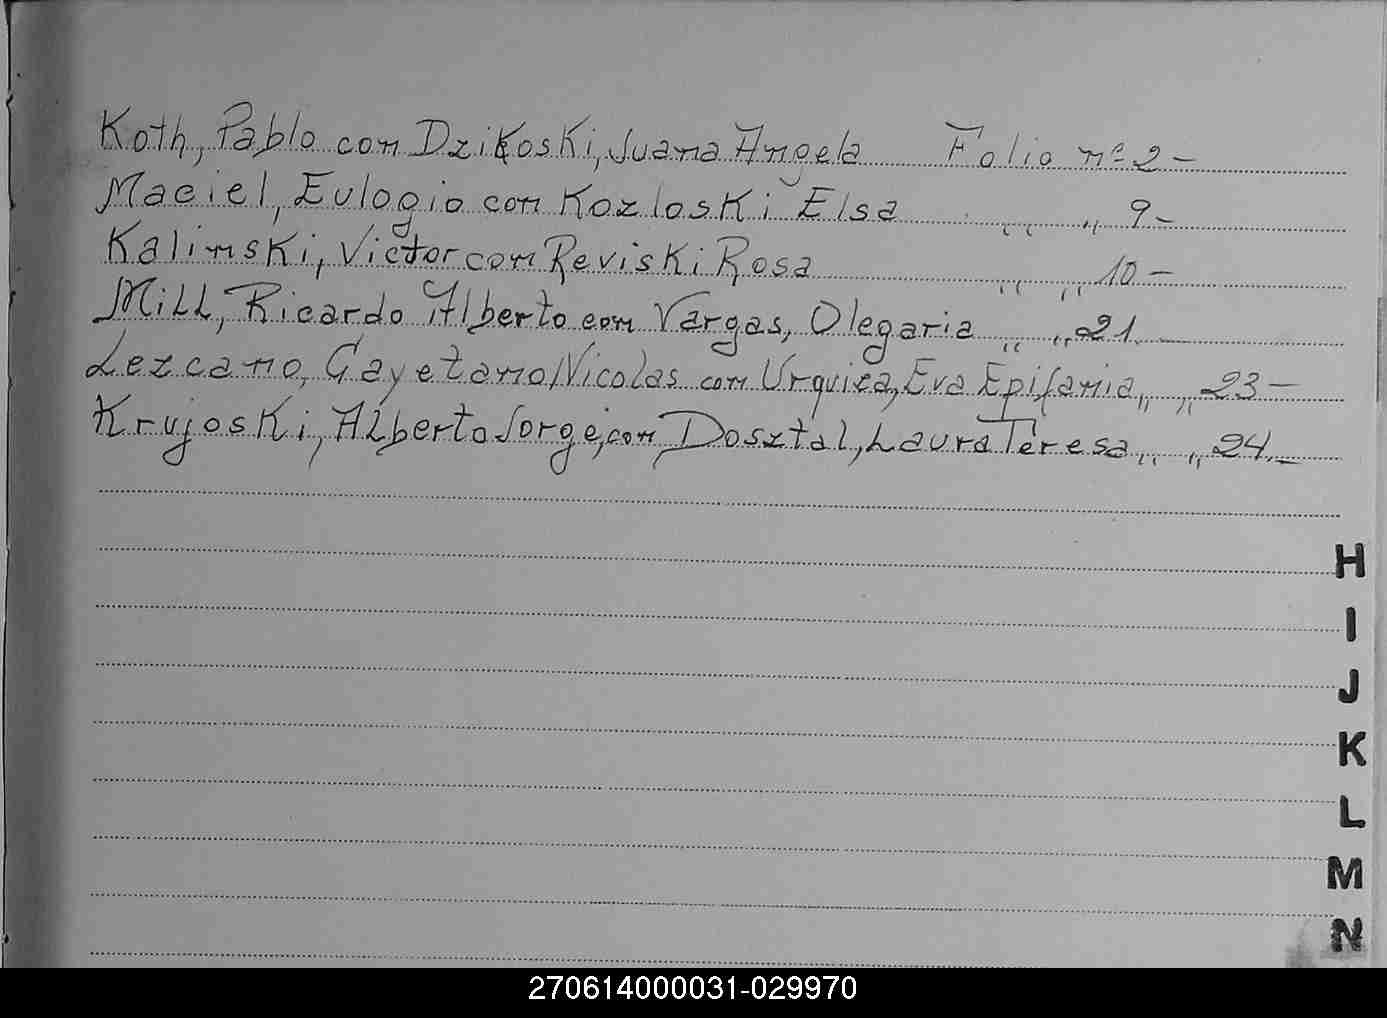 Koth, Pablo con Dzikoski, Juana Angela Folio nº 2-
Maciel, Eulogio con Kozloski Elsa " " 9-
Kalinski, Victor con Reviski Rosa " " 10-
Mill, Ricardo Alberto con Vargas, Olegaria " " 21.-
Lezcano, Cayetano Nicolas con Urquiza, Eva Epifania " " 23-
Krujoski, Alberto Jorge, con Dosztal, Laura Teresa " " 24.-
H
I
J
K
L
M
N
270614000031-029970